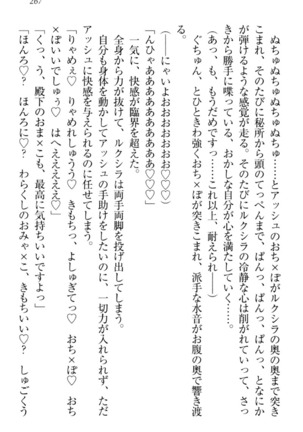 267
ぬちゅぬちゅぬちゅぬちゅ――とアッシュのおち×ぽがルクシラの奥の奥まで突き
こまれ、そのたびに秘所から頭のてっぺんまで、ぱんっ、ぱんっ、ぱんっ、となにか
が弾けるような感覚が走る。そのたびにルクシラの冷静な心は削がれていって、さっ
きから勝手に喋っている、おかしな自分が心を満たしていく……。
(あっ、も、もうだめですっ……これ以上、耐えられ――)
ぐちゅん、とひときわ強くおち×ぽが突きこまれ、派手な水音がお腹の奥で響き渡
(――にゃいよおおおおおお♡♡)
「んひゃああああああああ♡♡♡」
一気に、快感が臨界を超えた。
全身から力が抜けて、ルクシラは両手両脚を投げ出してしまう。
自分も身体を動かしてアッシュの手助けをしたいのに、一切力が入れられず、ただ
アッシュに快感を与えられるのに任せてしまう。
「りゃめぇ♡ りゃめれしゅうう♡ きもちっ、よしゅぎてっ♡ おち×ぽ♡ おち
×ぽいいでしゅう♡ はへええええ♡」
「くっ、う、殿下のおま×こも、最高に気持ちいいですよっ」
「ほんろ♡? ほんろに♡? わらくしのおみゃ×こ、きもちいい♡? しゅごくう